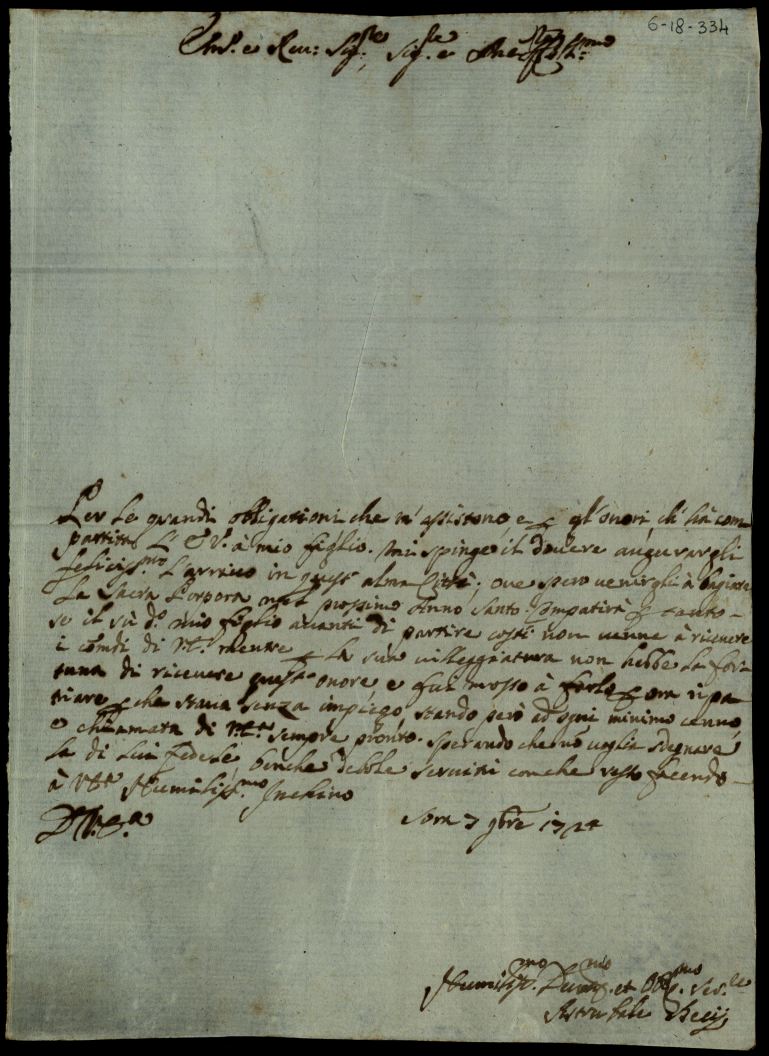 6-18-334
Em.e e Reu: Sig.re, Sig.re e
Per le grandi obligationi che m'assistono, e p gl'onori, ch'hà com-
partito L'E.V. à mio figlio. mi spinge il douere augurargli
felicis.mo L'arriuo in quest' alma Città; oue spero uenirgli à bagiare
La Sacra Porpora nel prossimo Anno Santo. Compatirà p tanto-
se il sud.o mio figlio auanti di partire costì non uenne à riceuere
i comdi di V.E. mentre p la sua uilleggiatura non hebbe la for-
tuna di riceuere quest' onore e fui mosso à farlo p ora ripa-
triare p che staua senza impiego, stando però ad ogni minimo cenno,
e chiamata di V.E. sempre pronto. sperando che nõ uoglia sdegnare
la di lui fedele, benche debole seruitù con che resto facendo-
à V.E. Humiliss.mo Inchino
D.V.E.a
Sora 7 9bre 1724
Humiliss.mo Deuo.mo et Obl.mo Ser.le